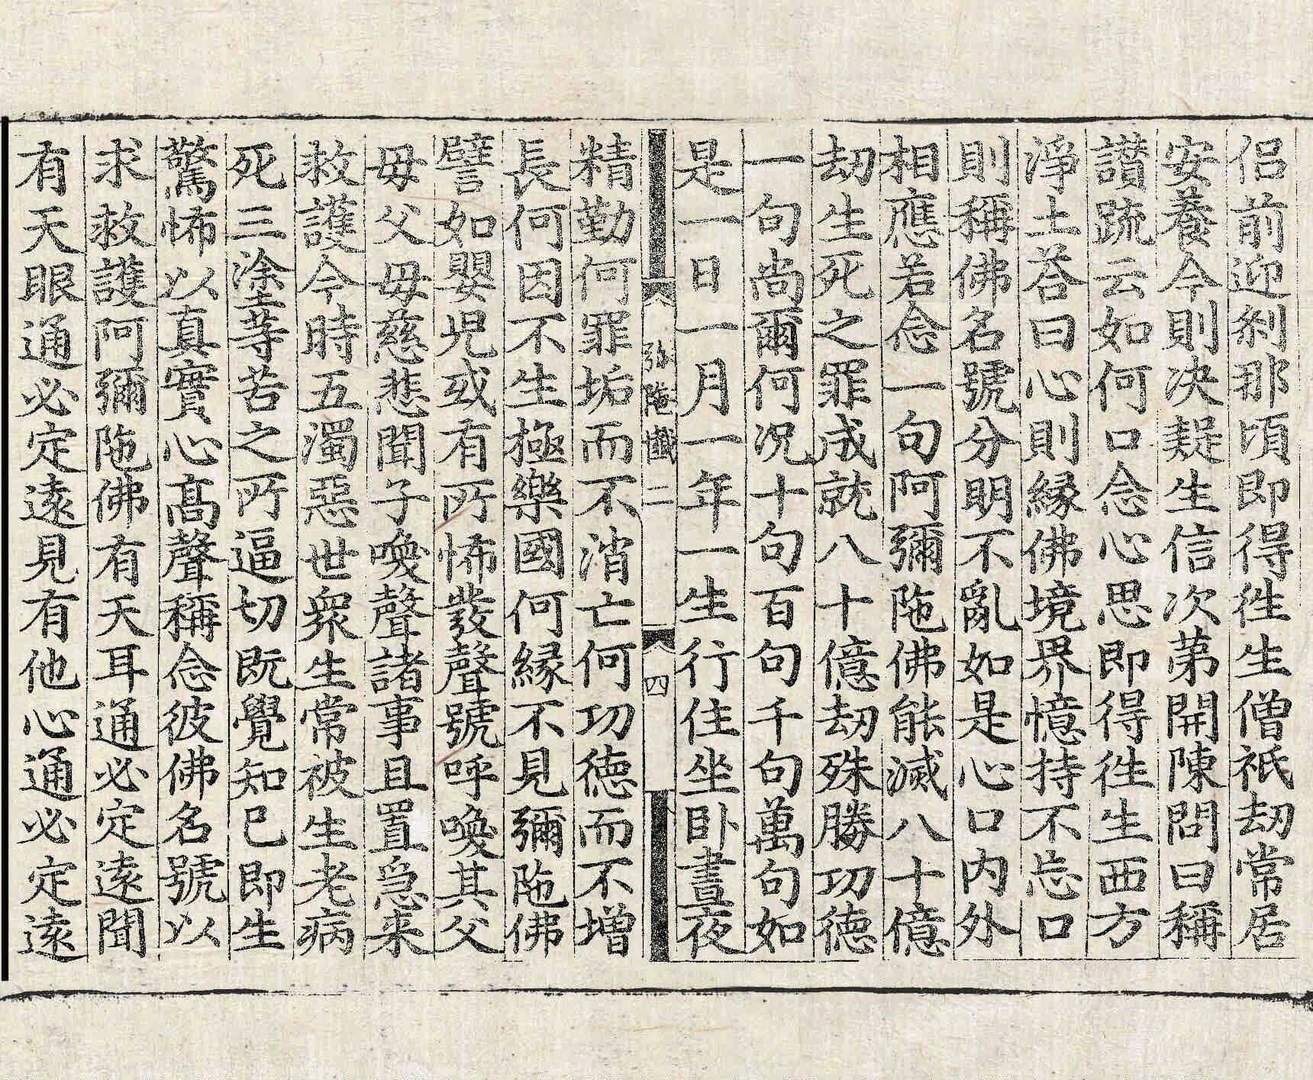 侣前迎刹那頃即得徃生僧祇劫常居
安養今則决疑生信次第開陳問曰稱
讃䟽云如何口念心思即得徃生西方
淨土荅曰心則縁佛境界憶持不忘口
則稱佛名號分明不亂如是心口内外
相應若念一句阿彌陁佛能滅八十億
劫生死之罪成就八十億劫殊勝功徳
一句尚爾何况十句百句千句萬句如
是一日一月一年一生行住坐卧晝夜
弥陁懺二 四
精勤何罪垢而不消亡何功徳而不增
長何因不生極樂國何縁不見彌陁佛
譬如嬰児或有所怖發聲號呼喚其父
母父母慈悲聞子喚聲諸事且置急来
救護今時五濁惡世衆生常被生老病
死三塗等苦之所逼切既覺知已即生
驚怖以真實心高聲稱念彼佛名號以
求救護阿彌陁佛有天耳通必定遠聞
有天眼通必定遠見有他心通必定遠